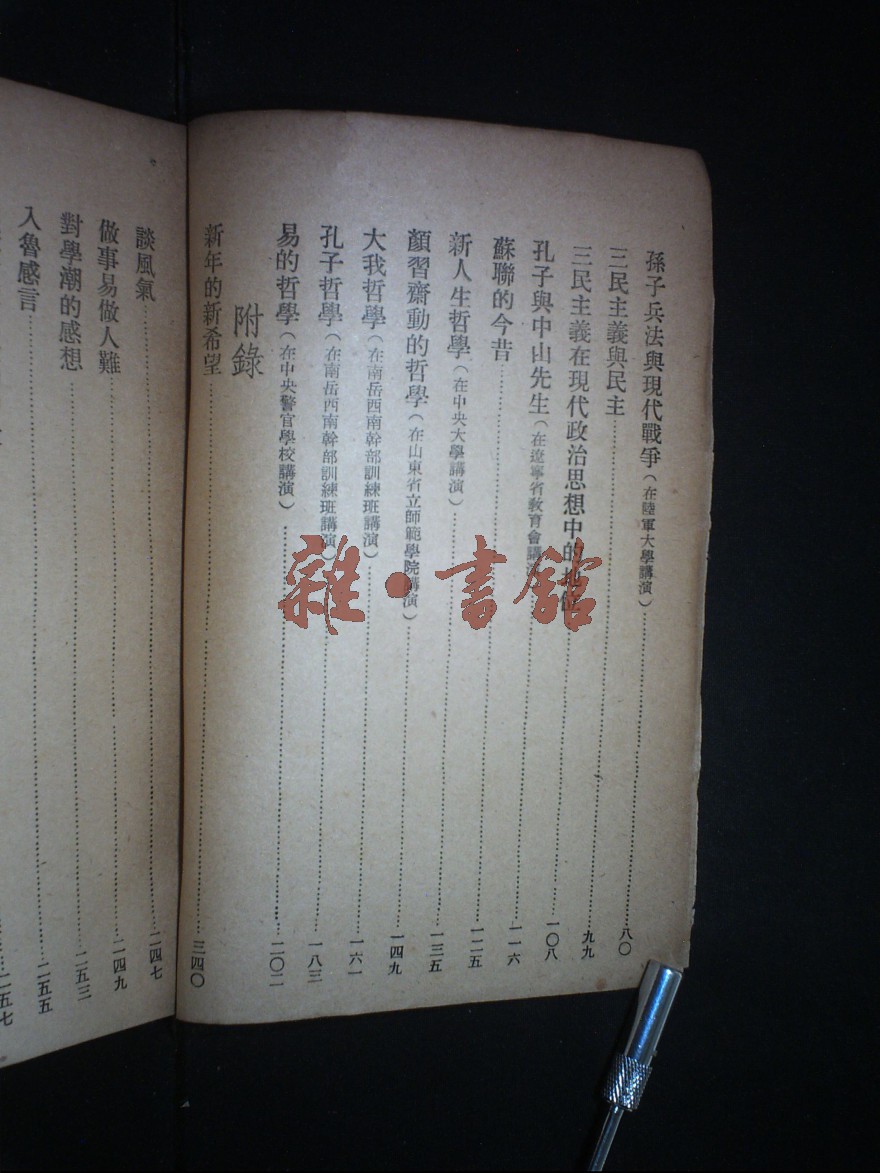 孫子兵法與現代戰爭(在陸軍大學講演)……八〇
三民主義與民主……九九
三民主義在現代政治思想中的地位……一〇八
孔子與中山先生(在遼寧省教育會講演……一一六
蘇聯的今昔……一二五
新人生哲學(在中央大學講演)……一三五
顏習齋動的哲學(在山東省立師範學院講演)……一四九
大我哲學(在南岳西南幹部訓練班講演)……一六一
孔子哲學(在南岳西南幹部訓練班講演)……一八三
易的哲學(在中央警官學校講演)……二〇二
附錄
新年的新希望……三四〇
談風氣……二四七
做事易做人難……二四九
對學潮的感想……二五三
入魯感言……二五五
二五七
雜·書館